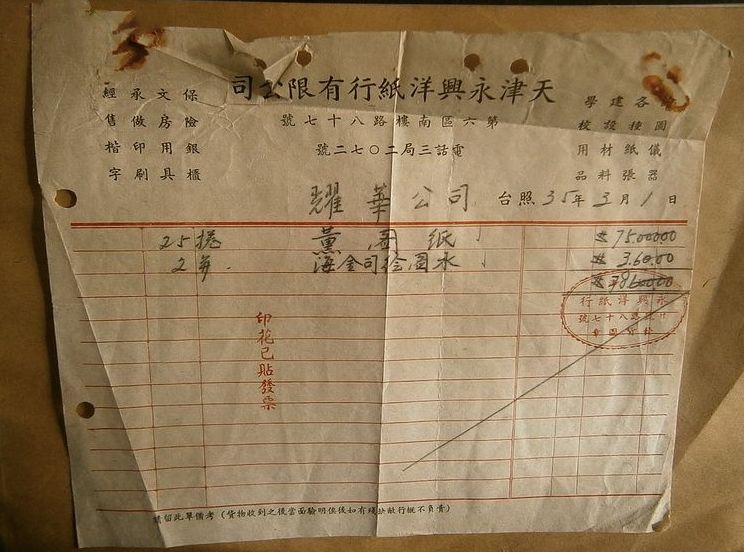 天津永興洋紙行有限公司
第六區南樓路八十七號
電話三局二〇七二號
圖儀器
各種紙張
建設材料
學校用品
保險銀櫃
文房用具
承做印刷
經售楷字
耀華公司 台照 35年3月1日
25捲 圖紙 75,000.00
2 海金司繪圖水 3,600.00
78600.00
印花已貼發票
永興洋紙行
請留此單備考（貨物收到之後當面驗明後如有殘缺敝行概不負責）